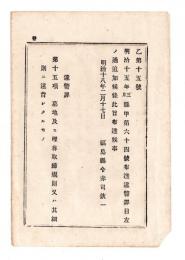 乙第十五號
明治十五年三月縣甲第六十四號布達違警罪目左
ノ通追加候條此旨布達候事
明治十八年二月十七日
福島縣令赤司欽一
違警罪
第十五項 墓地及ヒ埋葬取締規則又ハ其細
則ニ違背シタルモノ